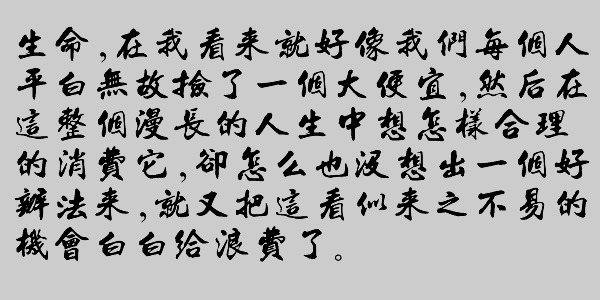 生命,在我看来就好像我們每個人
平白無故撿了一個大便宜,然后在
這整個漫長的人生中想怎樣合理
的消費它,卻怎么也沒想出一個好
辦法来,就又把這看似来之不易的
機會白白給浪費了。